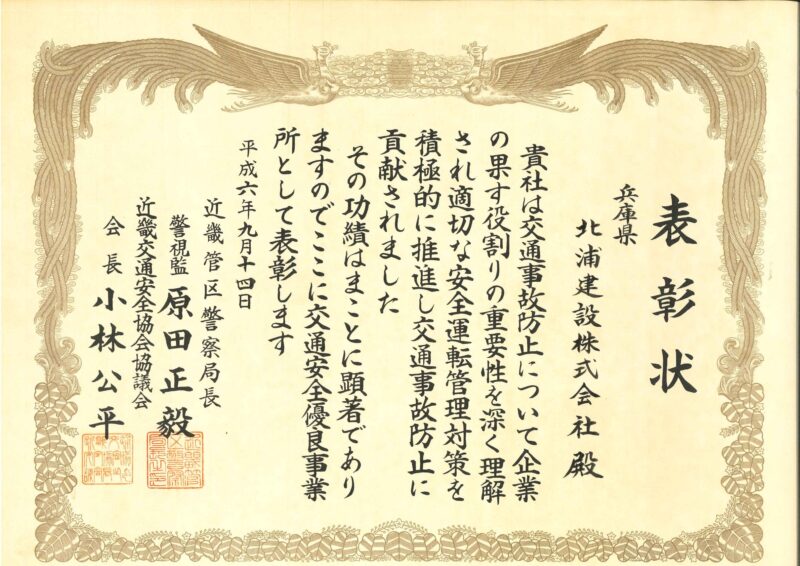 表彰状
兵庫県
北浦建設株式会社殿
貴社は交通事故防止について企業
の果す役割りの重要性を深く理解
され適切な安全運転管理対策を
積極的に推進し交通事故防止に
貢献されました
その功績はまことに顕著であり
ますのでここに交通安全優良事業
所として表彰します
平成六年九月十四日
近畿管区警察局長
警視監 原田正毅
近畿交通安全協会協議会
会長 小林公平